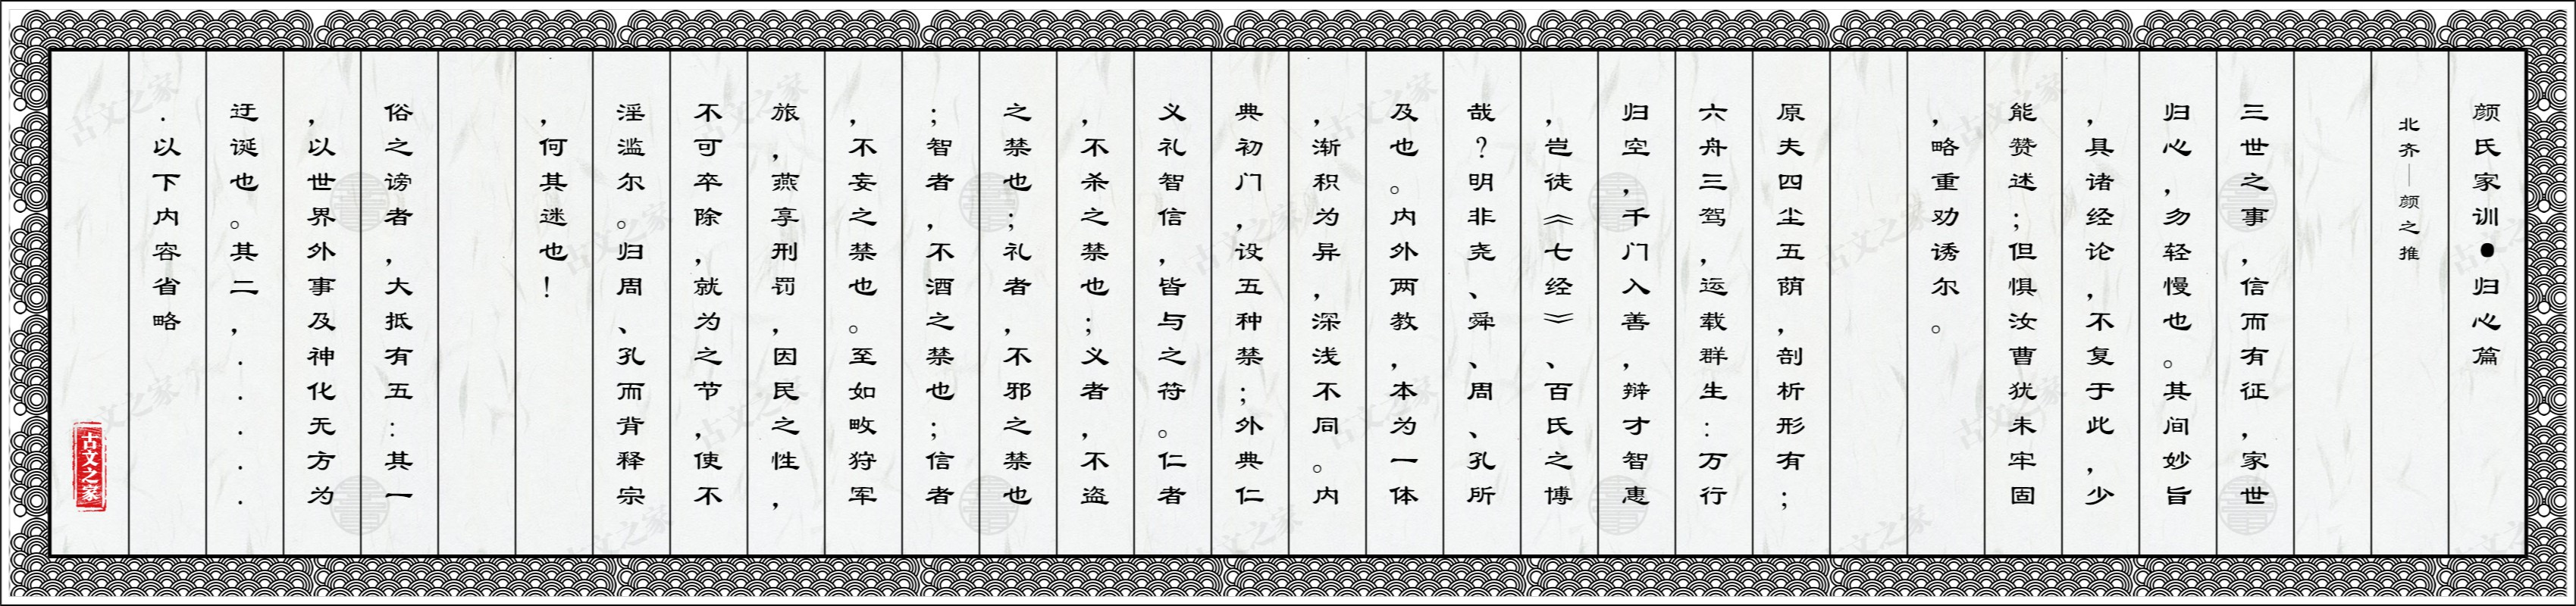 颜氏家训●归心篇
北齐—颜之推
三世之事，信而有征，家世
归心，勿轻慢也。其间妙旨
，具诸经论，不复于此，少
能赞述；但惧汝曹犹未牢固
，略重劝诱尔。
原夫四尘五荫，剖析形有；
六舟三驾，运载群生：万行
归空，千门入善，辩才智惠
，岂徒《七经》、百氏之博
哉？明非尧、舜、周、孔所
及也。内外两教，本为一体
，渐积为异，深浅不同。内
典初门，设五种禁；外典仁
义礼智信，皆与之符。仁者
，不杀之禁也；义者，不盗
之禁也；礼者，不邪之禁也
；智者，不酒之禁也；信者
，不妄之禁也。至如畋狩军
旅，燕享刑罚，因民之性，
不可卒除，就为之节，使不
淫滥尔。归周、孔而背释宗
，何其迷也！
俗之谤者，大抵有五：其一
，以世界外事及神化无方为
迂诞也。其二，.....
.以下内容省略
古文之家